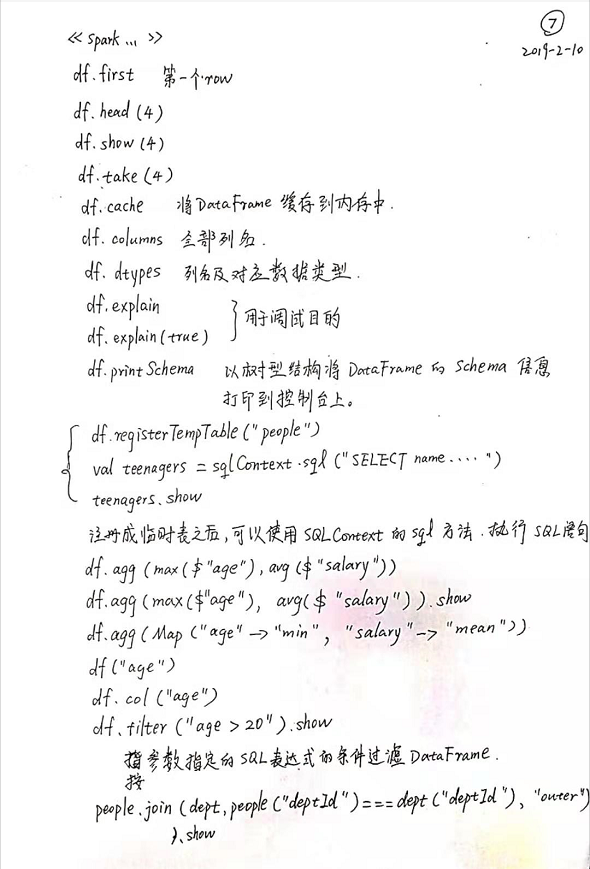 ⑦
<< spark ... >>
2019-2-10
df.first 第一个row
df.head (4)
df.show (4)
df.take (4)
df.cache 将DataFrame 缓存到内存中.
df. columns 全部列名.
df. dtypes 列名及对应数据类型.
df.explain
df.explain(true) } 用于调试目的
df.printSchema 以树型结构将 DataFrame 的 Schema 信息
打印到控制台上。
{ df.registerTempTable("people")
val teenagers = sqlContext.sql ("SELECT name.... ")
teenagers.show
注册成临时表之后,可以使用 SQLContext 的 sql 方法.执行 SQL语句
df.agg (max($"age"), avg($"salary"))
df.agg (max($"age"), avg($"salary")).show
df.agg (Map ("age" -> "min", "salary" -> "mean"))
df("age")
df. col ("age")
df.filter ("age > 20").show
按参数指定的SQL表达式的条件过滤 DataFrame.
people.join (dept, people ("deptId") === dept ("deptId"), "outer")
).show